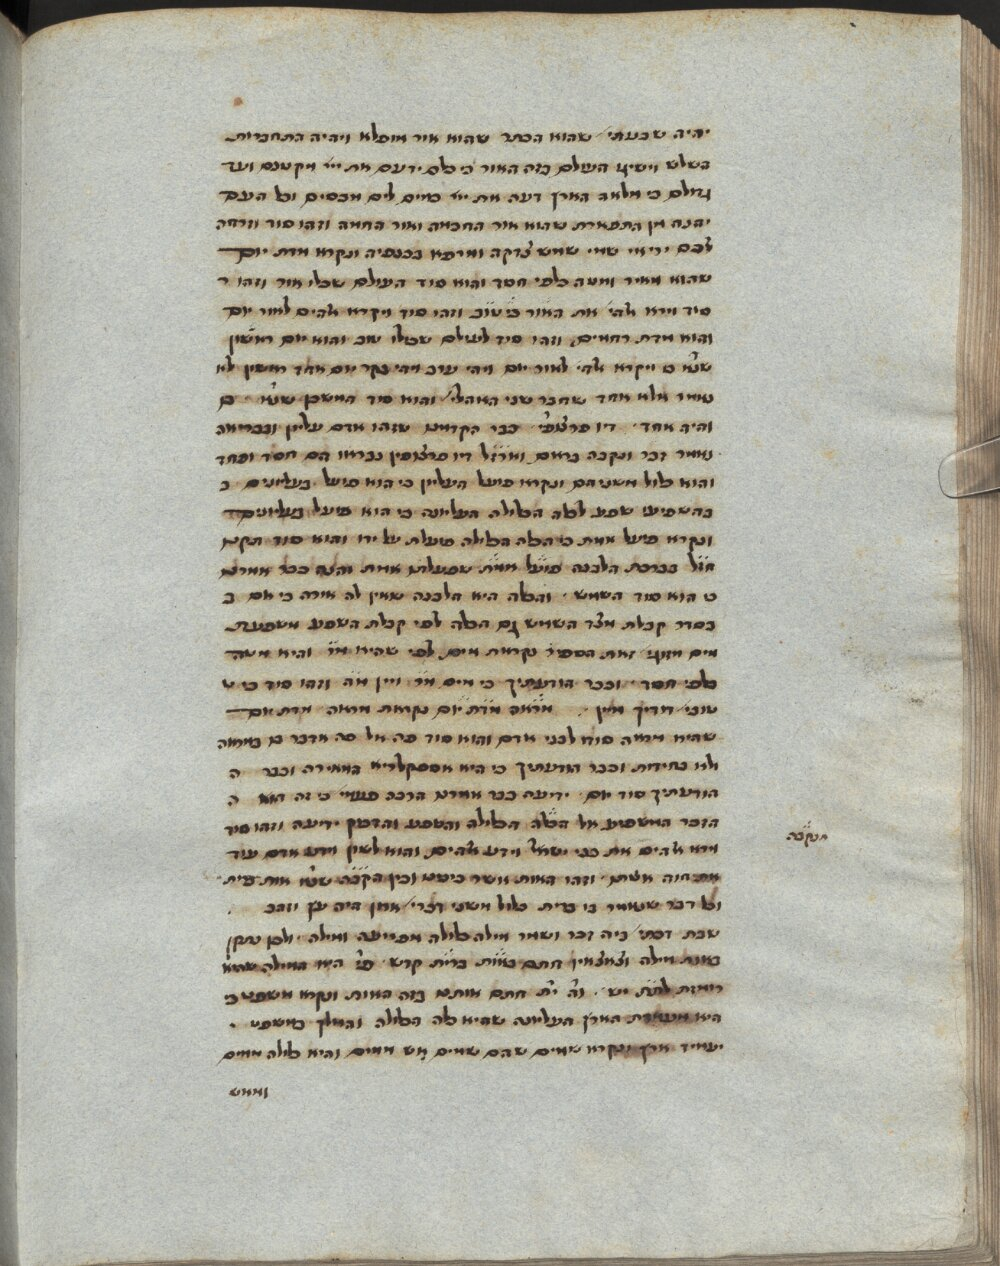 יהיה שבעתי׳ שהוא הכתר שהוא אור מופלא ויהיה התחברות
השלש וישיגו העולם בזה האור כי כלם ידעם את ייי מקטנם ועד
גדולם כי מלאה הארץ דעה את ייי כמים לים מכסים וכל העם
יהנה מן התפארת שהוא אור החכמה ואור החמה וזהו סוד וזרחה
לכם יראי שמי שמש צדקה ומרפא בכנפיה ונקרא מדת יום
שהוא מאיר ומטה כלפי חסד והוא סוד העולם שכלו אור וזהו ר
סוד וירא אלהי׳ את האור כי טוב וזהו סוד ויקרא אלהים לאור יום
והוא מדת רחמים, וזהו סוד לעולם שכולו טוב והוא יום ראשון
שנ׳ ט ויקרא אלהי׳ לאור יום ויהי ערב ויהי בקר יום אחד ראשון לא
נאמר אלא אחד שחבר שני האהלי׳ והוא סוד המשכן שנ׳ ם
והיה אחד׳ דיו פרצופי׳ כבר הקדמנו שזהו אדם עליון ובבריאה
נאמר זכר ונקבה בראם ואז״ל דיו פרצופין נבראו הם חסד ופחד
והוא כלול משניהם ונקרא פועל העליון כי הוא פועל בעליונים ב
בהשפיעו שפע לכלה הכלולה העליונה כי הוא פועל בעליונים
ונקרא פועל אמת כי הכלה הכלולה פועלת על ידו והוא סוד תקנו
חז״ל בברכת הלבנה פועל אמת שפעולתו אמת והנה כבר אמרנו
כי הוא סוד השמש׳ והכלה היא הלבנה שאין לה אורה כי אם ב
בסדר קבלת מצד השמש גם הכלה לפי קבלת השפע משפעת
מים וזוני׳ זאת הספיר׳ נקראת מים לפי שהיא מ״ו והיא מטה
כלפי חסד׳ וכבר הודעתיך כי מים מ״ר ויין מ״ה וזהו סוד כי ט
טובי׳ דודיך מיין׳ מראה מדת יום נקראת מראה מדת יום
שהיא מראה סודו לבני אדם והוא סוד פה אל פה אדבר בו במראה
ולא בחידות וכבר הודעתיך כי היא אספקלריא המאירה וכבר ה
הודעתיך סוד יום׳ ידיעה כבר אמרנו הרבה פעמי׳ כי זה הוא ה
הזכר המשפיע אל הכלה הכלולה והשפע והדבוק ידיעה וזהו סוד
וירא אלהים את בני ישראל וידע אלהים, והוא לשון וידע אדם עוד
את חוה אשתו׳ וזהו האות אשר בימינו ובין הקב״ה שנ׳ אות ברית׳
וכל דבר שנאמר בו ברית כלול משני דברי׳ ארון היה עץ וזהב
שבת דכתי׳ ביה זכר ושמור מילה כלולה מפריעה ומילה׳ ולכן נתקן
באות מילה וצאצאיו חתם באות ברית קדש׳ פי׳ היא המילה שהוא
רומזת לאות יש׳׳ וה׳ ית׳ חתם אותנו בזה האות ונקרא משפט כי
היא מעמדת הארץ העליונה שהיא כלה הכלולה והמלך במשפט
יעמיד ארץ ונקרא שמים שהם שמים אש ומים והיא כלולה ממים
ומאש
הנקבה